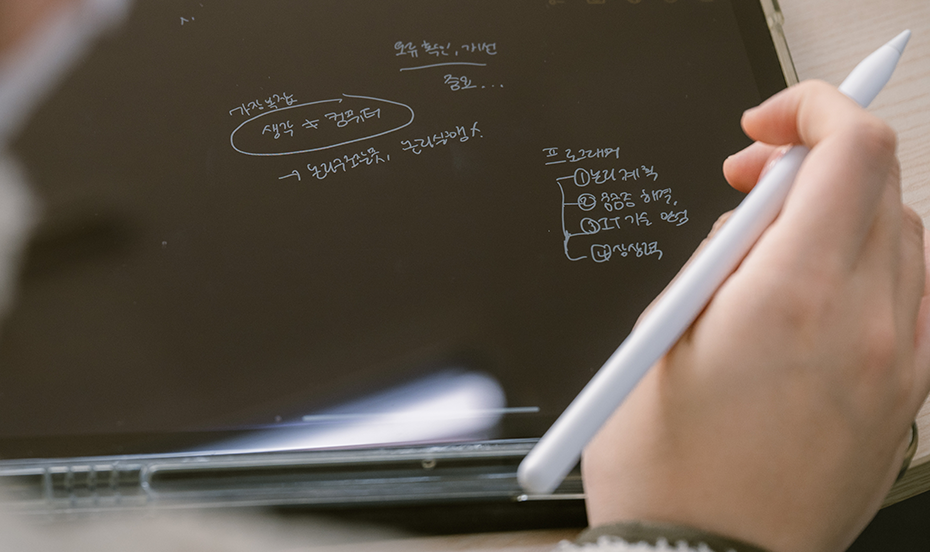 오류 확인, 개선
중요...
가장 복잡
생각 ≠ 컴퓨터
→ 논리구조 잘못, 논리상 맹X.
프로그래머
① 논리 계획
② 궁금증 해결.
③ IT 기술 연결
④ 상상력